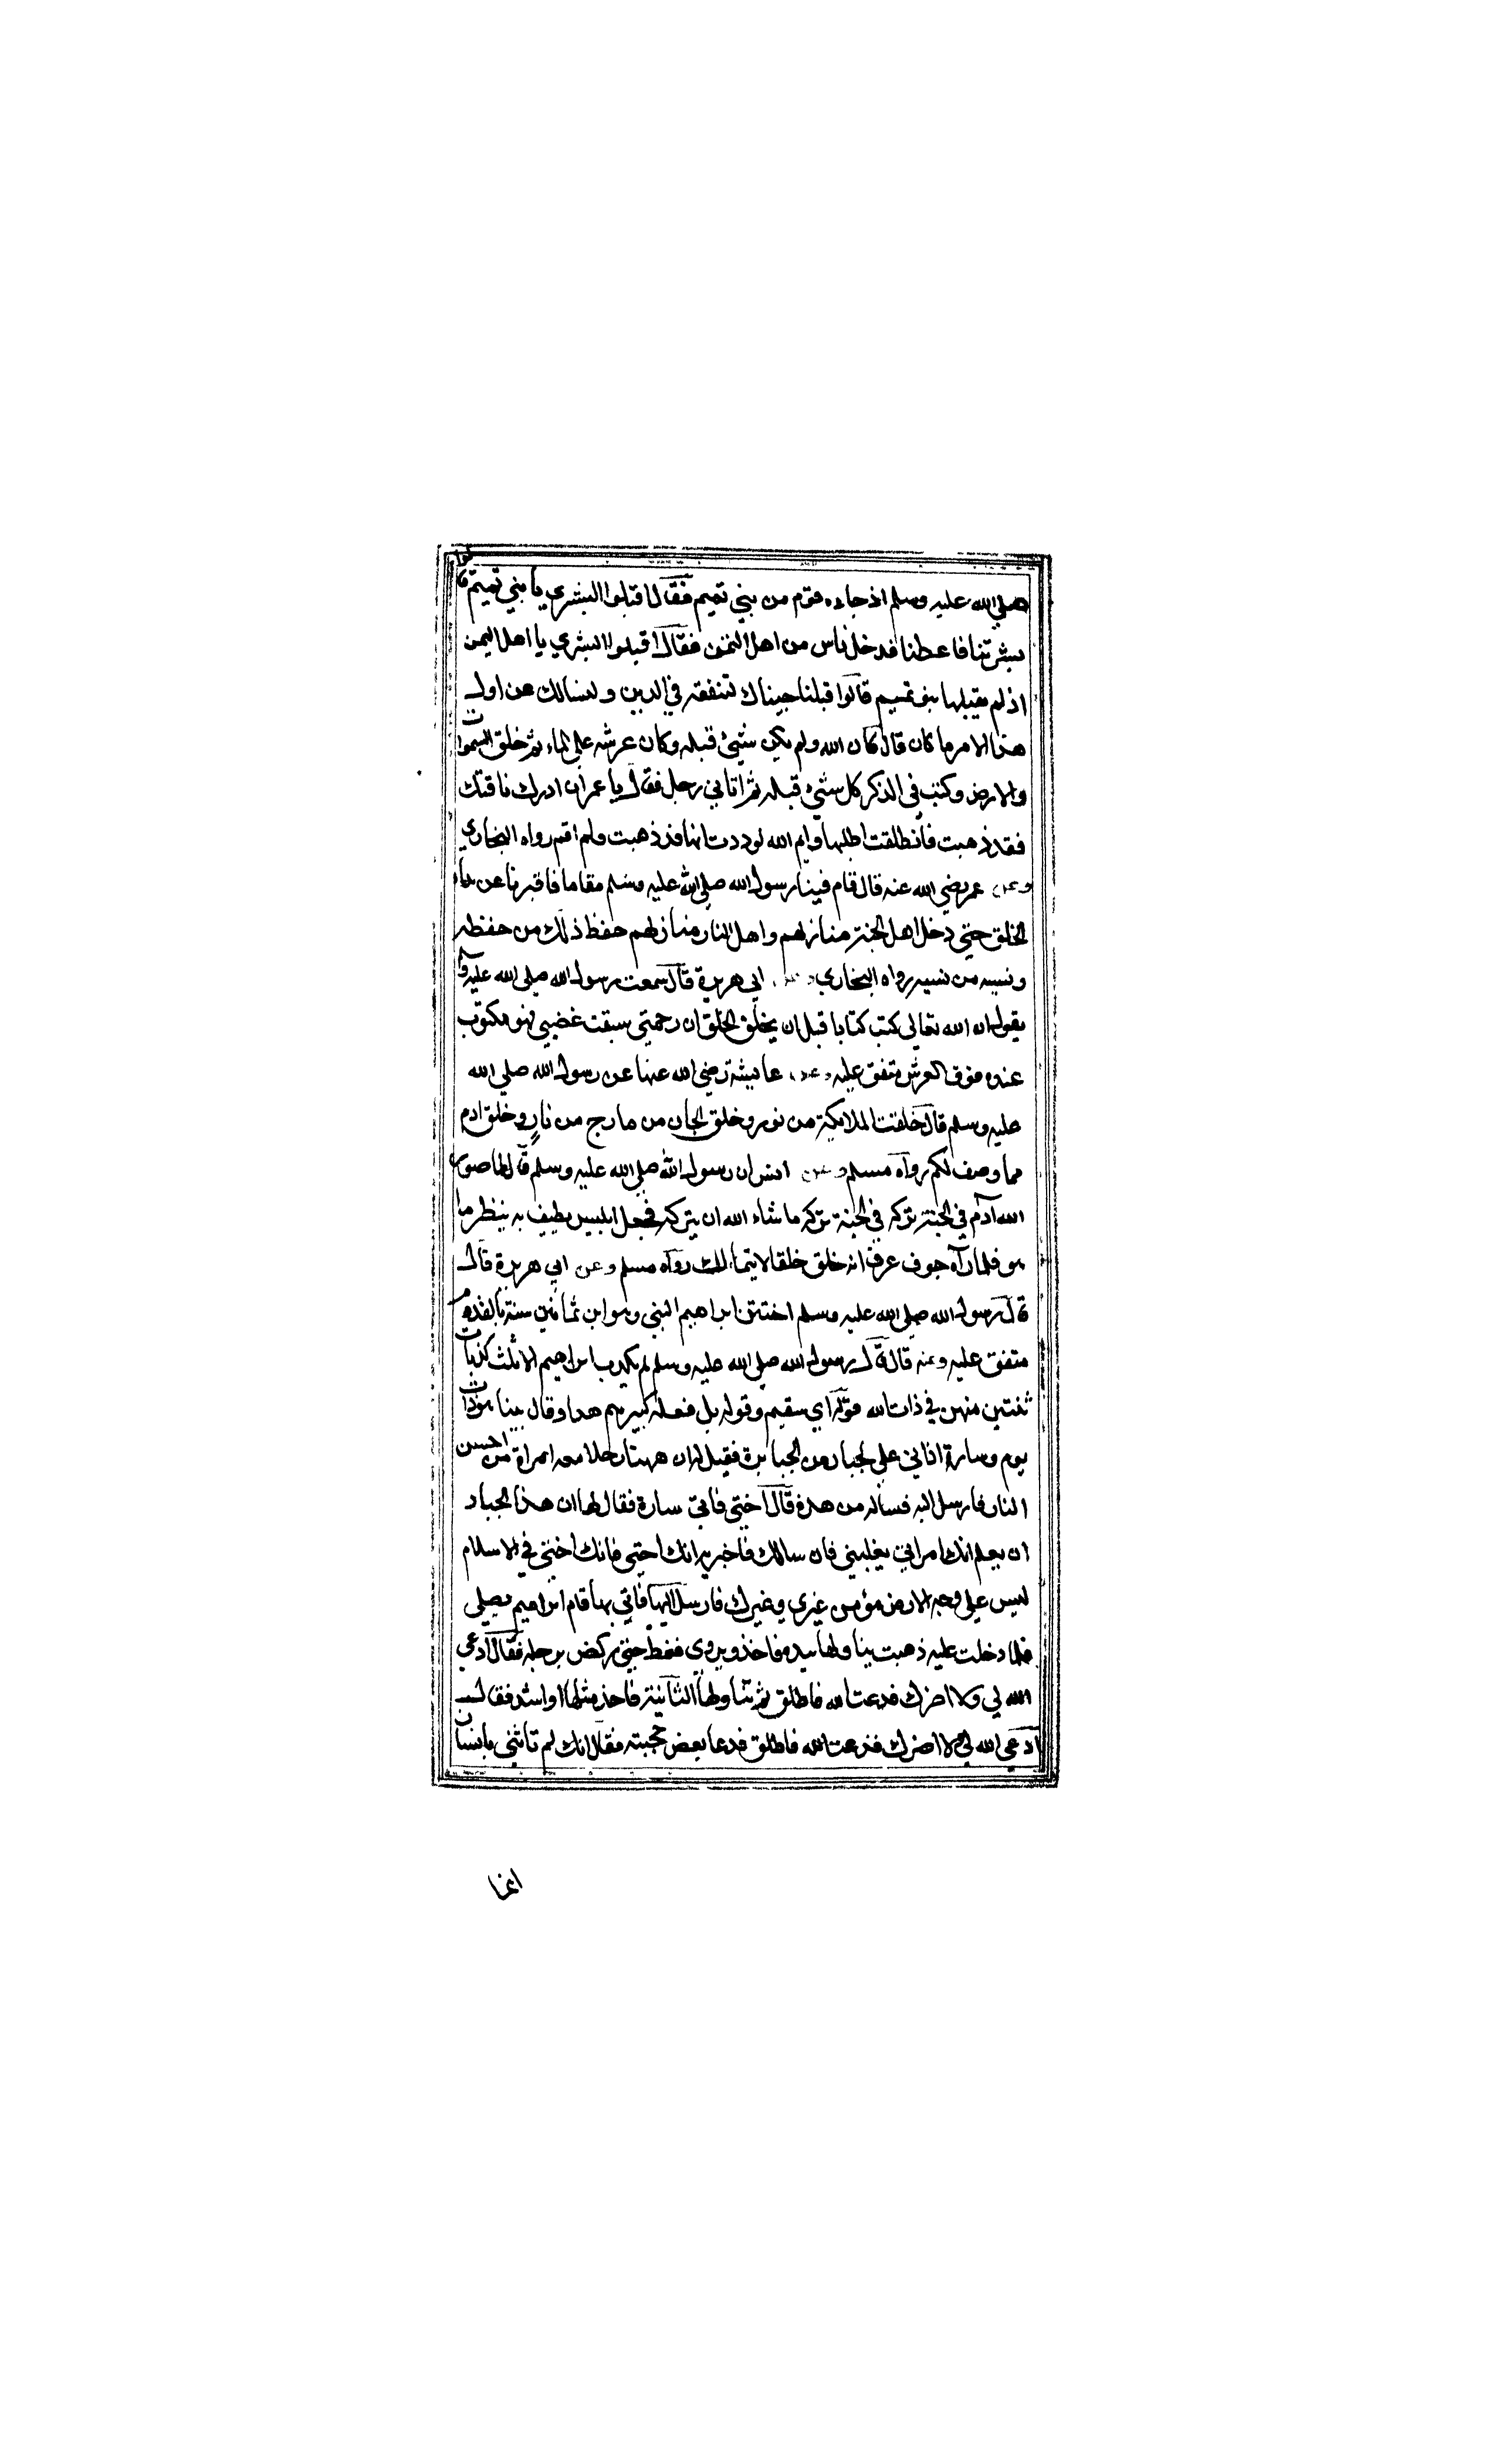 صلي الله عليه وسلم اذ جاءه قوم من بني تميم فقال اقبلوا البشري يا بني تميم قالوا
بشرتنا فاعطنا فدخل ناس من اهل اليمن فقال اقبلوا البشري يا اهل اليمن
اذ لم يقبلها بنو تميم قالوا قبلنا جيناك لنتفقه في الدين ولنسالك عن اول
هذا الامر ما كان قال كان الله ولم يكن شيئ قبله وكان عرشه علي الماء ثم خلق السموات
والارض وكتب في الذكر كل شيئ قبله ثم اتاني رجل فقال يا عمران ادرك ناقتك
فقد ذهبت فانطلقت اطلبها وايم الله لوددت انها قد ذهبت ولم اقم رواه البخاري
وعن عمر رضي الله عنه قال قام فينا رسول الله صلي الله عليه وسلم مقاما فاخبرنا عن بدء
الخلق حتي دخل اهل الجنة منازلهم واهل النار منازلهم حفظ ذلك من حفظه
ونسيه من نسيه رواه البخاري وعن ابي هريرة قال سمعت رسول الله صلي الله عليه و
يقول ان الله تعالي كتب كتابا قبل ان يخلق الخلق ان رحمتي سبقت غضبي فهو مكتوب
عنده فوق العرش متفق عليه وعن عايشة رضي الله عنها عن رسول الله صلي الله
عليه وسلم قال خلقت الملايكة من نور وخلق الجان من مارج من نار وخلق ادم
مما وصف لكم رواه مسلم وعن انس ان رسول الله صلي الله عليه وسلم قال لما صور
الله آدم في الجنة تركه في الجنة تركه ما شاء الله ان يتركه فجعل ابليس يطيف به ينظر ما
هو فلما رآه جوف عرف انه خلق خلقا لا يتمالك رواه مسلم وعن ابي هريرة قال
قال رسول الله صلي الله عليه وسلم اختتن ابراهيم النبي وهو ابن ثمانين سنة بالقدوم
متفق عليه وعنه قال قال رسول الله صلي الله عليه وسلم لم يكذب ابراهيم الا ثلث كذبات
ثنتين منهن في ذات الله قوله اني سقيم وقوله بل فعله كبيرهم هذا وقال بينا هو ذات
يوم وسارة اذ اتي علي جبار من الجبابرة فقيل له ان ههنا رجلا معه امراة من احسن
الناس فارسل اليه فساله من هذه قال اختي فاتي سارة فقال لها ان هذا الجبار
ان يعلم انك امراتي يغلبني فان سالك فاخبريه انك اختي فانك اختي في الاسلام
ليس علي وجه الارض مؤمن غيري وغيرك فارسل اليها فاتي بها قام ابراهيم يصلي
فلما دخلت عليه ذهب يتناولها بيده فاخذ ويروي فغط حتي ركض برجله فقال ادعي
الله لي ولا اضرك فدعت الله فاطلق ثم تناولها الثانية فاخذ مثلها او اشد فقال
ادعي الله لي ولا اضرك فدعت الله فاطلق فدعا بعض حجبته فقال انك لم تاتني بانسان
انما